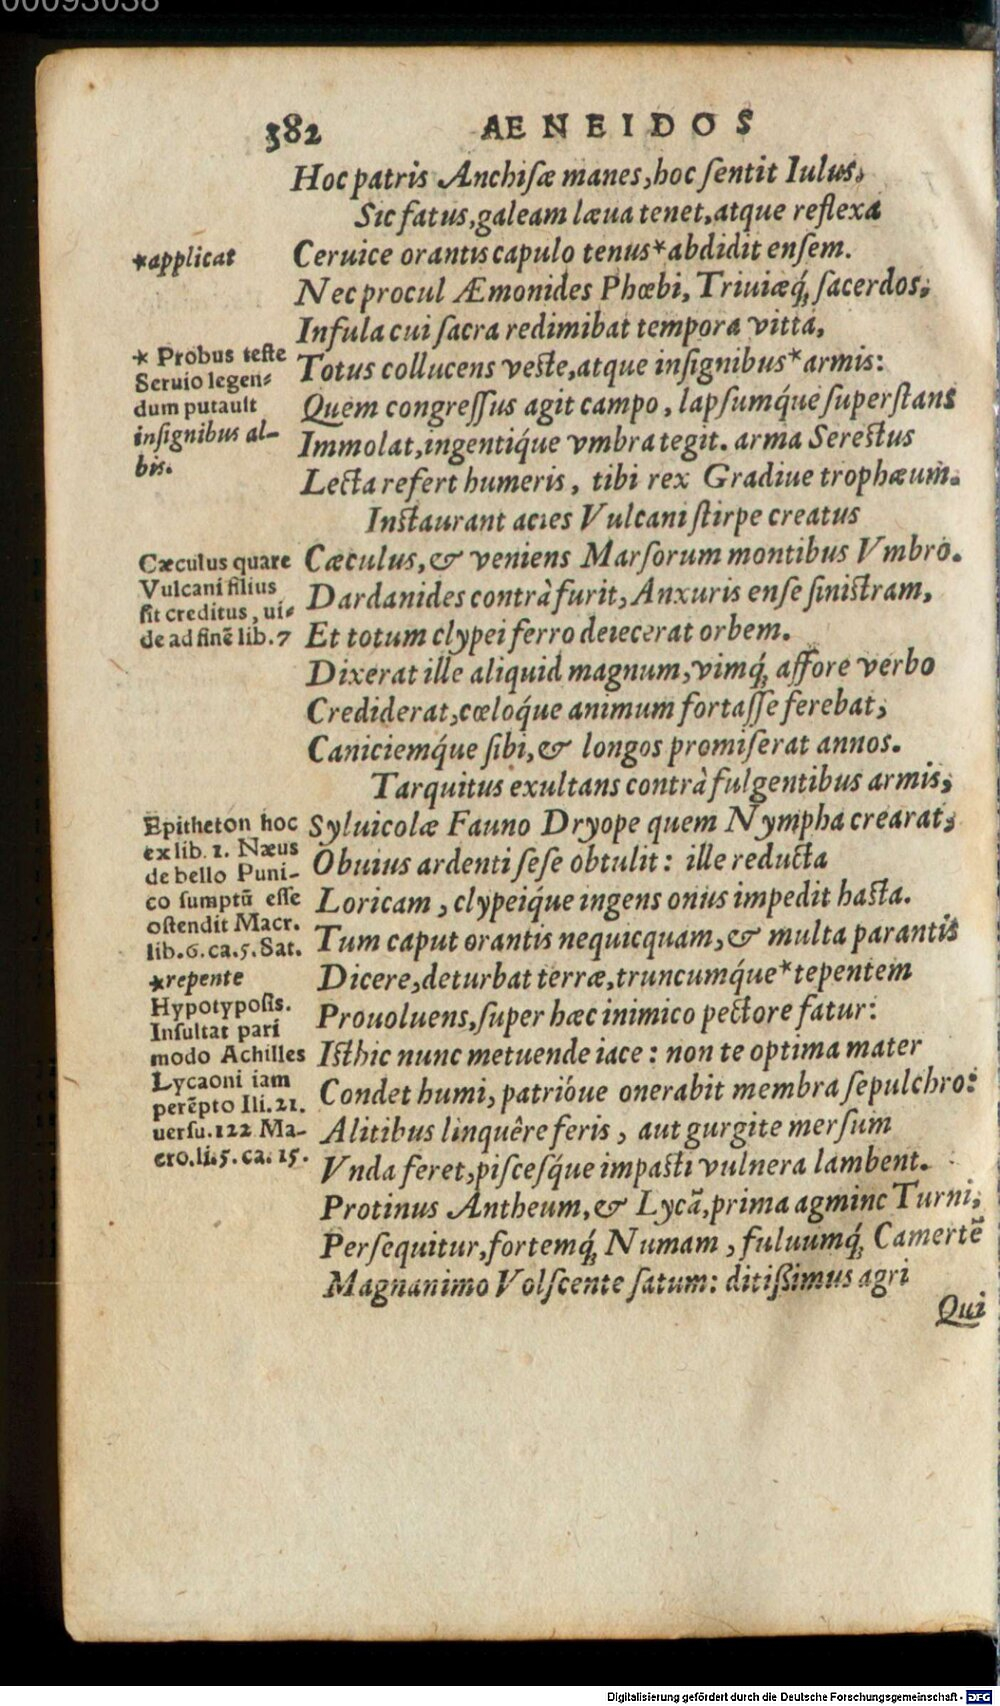 00093038
382 AENEIDOS
Hoc patris Anchiſæ manes, hoc ſentit Iulus,
Sic fatus, galeam læua tenet, atque reflexa
*applicat
Ceruice orantis capulo tenus*abdidit enſem.
Nec procul Æmonides Phœbi, Triuiæq́; ſacerdos,
Infula cui ſacra redimibat tempora vitta,
* Probus teſte
Seruio legen-
dum putauit
inſignibus al-
bis.
Totus collucens veſte, atque inſignibus*armis:
Quem congreſſus agit campo, lapſumq́ue ſuperſtans
Immolat, ingentiq́ue vmbra tegit. arma Sereſtus
Lecta refert humeris, tibi rex Gradiue trophæum.
Inſtaurant acies Vulcani ſtirpe creatus
Cæculus quare
Vulcani filius
ſit creditus, ui-
de ad finē lib.7
Cæculus, & veniens Marſorum montibus Vmbro.
Dardanides contrà furit, Anxuris enſe ſiniſtram,
Et totum clypei ferro deiecerat orbem.
Dixerat ille aliquid magnum, vimq́; affore verbo
Crediderat, cœloq́ue animum fortaſſe ferebat,
Caniciemq́ue ſibi, & longos promiſerat annos.
Tarquitus exultans contrà fulgentibus armis,
Epitheton hoc
ex lib. 1. Næus
de bello Puni-
co ſumptū eſſe
oſtendit Macr.
lib.6.ca.5.Sat.
*repente
Hypotypoſis.
Inſultat pari
modo Achilles
Lycaoni iam
perēpto Ili.21.
uerſu.122 Ma-
cro.li.5.ca.15.
Syluicolæ Fauno Dryope quem Nympha crearat,
Obuius ardenti ſeſe obtulit: ille reducta
Loricam, clypeiq́ue ingens onus impedit haſta.
Tum caput orantis nequicquam, & multa parantis
Dicere, deturbat terræ, truncumq́ue*tepentem
Prouoluens, ſuper hæc inimico pectore fatur:
Iſthic nunc metuende iace: non te optima mater
Condet humi, patrióue onerabit membra ſepulchro:
Alitibus linquêre feris, aut gurgite merſum
Vnda feret, piſceſq́ue impaſti vulnera lambent.
Protinus Antheum, & Lycā, prima agmine Turni,
Perſequitur, fortemq́; Numam, fuluumq́; Camertē
Magnanimo Volſcente ſatum: ditißimus agri
Qui
Digitalisierung gefördert durch die Deutsche Forschungsgemeinschaft - DFG